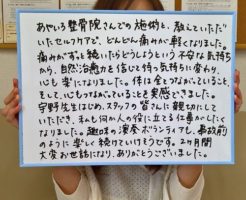 あやいろ整骨院さんでの施術と、教えていただ
いたセルフケアで、どんどん痛みが軽くなりました。
痛みがずっと続いたらどうしようという不安な気持ち
から、自然治癒力を信じて待つ気持ちに変わり、
心も楽になりました。体は全てつながっていること、
そして、心もつながっていることを実感できました。
宇野先生はじめ、スタッフの皆さんに親切にして
いただき、私も何か人の役に立てる仕事がしたく
なりました。趣味の演奏ボランティアも、事故前
のように楽しく続けていけそうです。2ヶ月間
大変お世話になり、ありがとうございました。